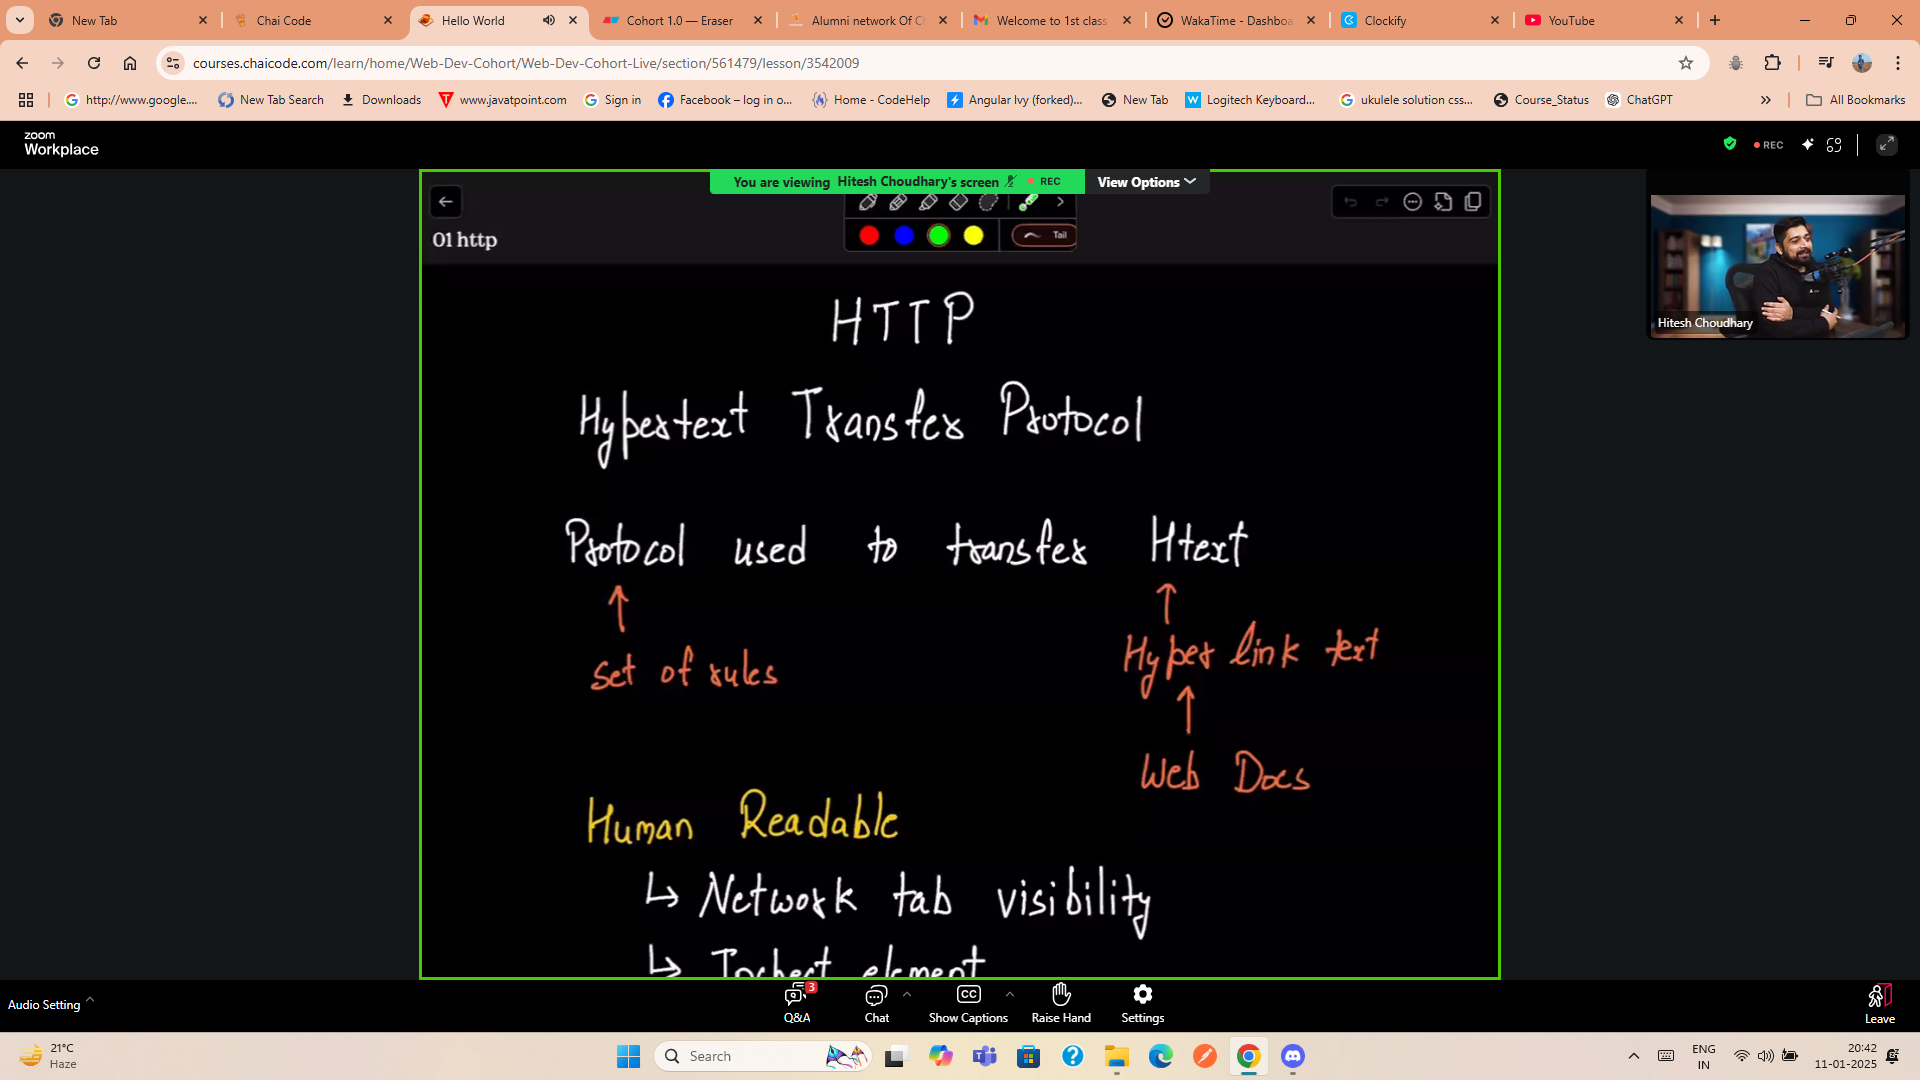 New Tab
Chai Code
Hello World
Cohort 1.0 — Eraser
Alumni network Of C
Welcome to 1st class
WakaTime - Dashboa
Clockify
YouTube
courses.chaicode.com/learn/home/Web-Dev-Cohort/Web-Dev-Cohort-Live/section/561479/lesson/3542009
http://www.google....
New Tab Search
Downloads
www.javatpoint.com
Sign in
Facebook – log in o...
Home - CodeHelp
Angular Ivy (forked)...
New Tab
Logitech Keyboard...
ukulele solution css...
Course_Status
ChatGPT
All Bookmarks
zoom
Workplace
REC
You are viewing Hitesh Choudhary's screen
REC
View Options
01 http
Tail
Hitesh Choudhary
HTTP
Hypertext Transfer Protocol
Protocol used to transfer Htext
set of rules
Hyper link text
Web Docs
Human Readable
↳ Network tab visibility
↳ Inspect element
Audio Setting
3
Q&A
Chat
CC
Show Captions
Raise Hand
Settings
Leave
21°C
Haze
Search
ENG
IN
20:42
11-01-2025